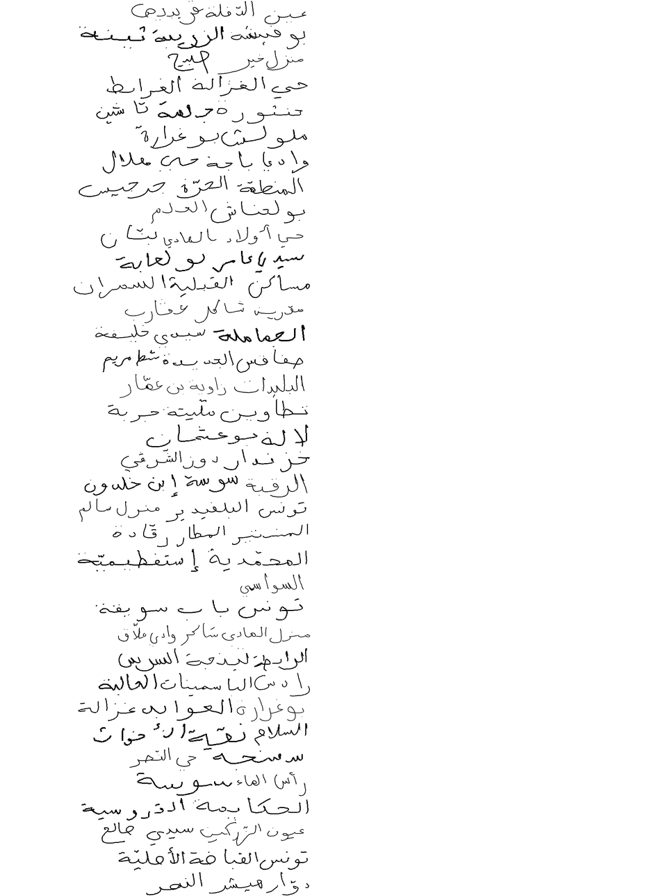 عين الدفلة
بو فيشة الزريبة ثينة
منزل خير
حي الغزالة الغرابط
منشورة جلمة تاشين
ملولش بوغرارة
وادي باجة حي هلال
المنطقة الحرّة جرجيس
بولعناش العلام
حي أولاد بالهادي بشان
سيدي عامر بولعابة
مساكن القبلية السمران
مدرسة شاكر عقارب
الحمامات سيدي خليفة
صفاقس الجديدة شط مريم
البليدات زاوية بن عمّار
تطاوين مليتة جربة
لالة بوعثمان
خزندار دوز الشرقي
الرقبة سوسة إبن خلدون
تونس البلفيدير منزل سالم
المنستير المطار رقادة
المحمّدية إستفطيميّة
السواسي
تونس باب سويقة
منزل الهادي شاكر وادي ملاق
الرابطة لبذجة السرس
رادس الياسمينات العالية
بوغرارة العوابد غزالة
السلام نقية الأخوات
سمنجة حي النصر
رأس الماء سوسة
الحكايمة القروسية
عيون التركي سيدي صالح
تونس القباضة الأصليّة
دوّار هيشر النصر